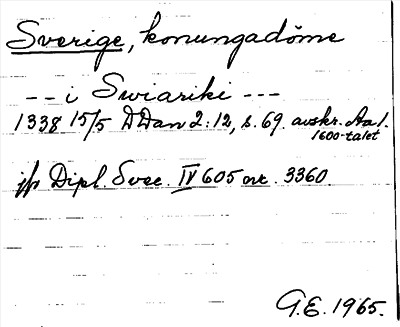 Sverige, konungadöme
-- i Swiariki ---
1338 15/5 DDan 2:12, s. 69. avskr. Aa 1.
1600-talet
jfr Dipl. Svec. IV 605 nr. 3360
G.E. 1965.